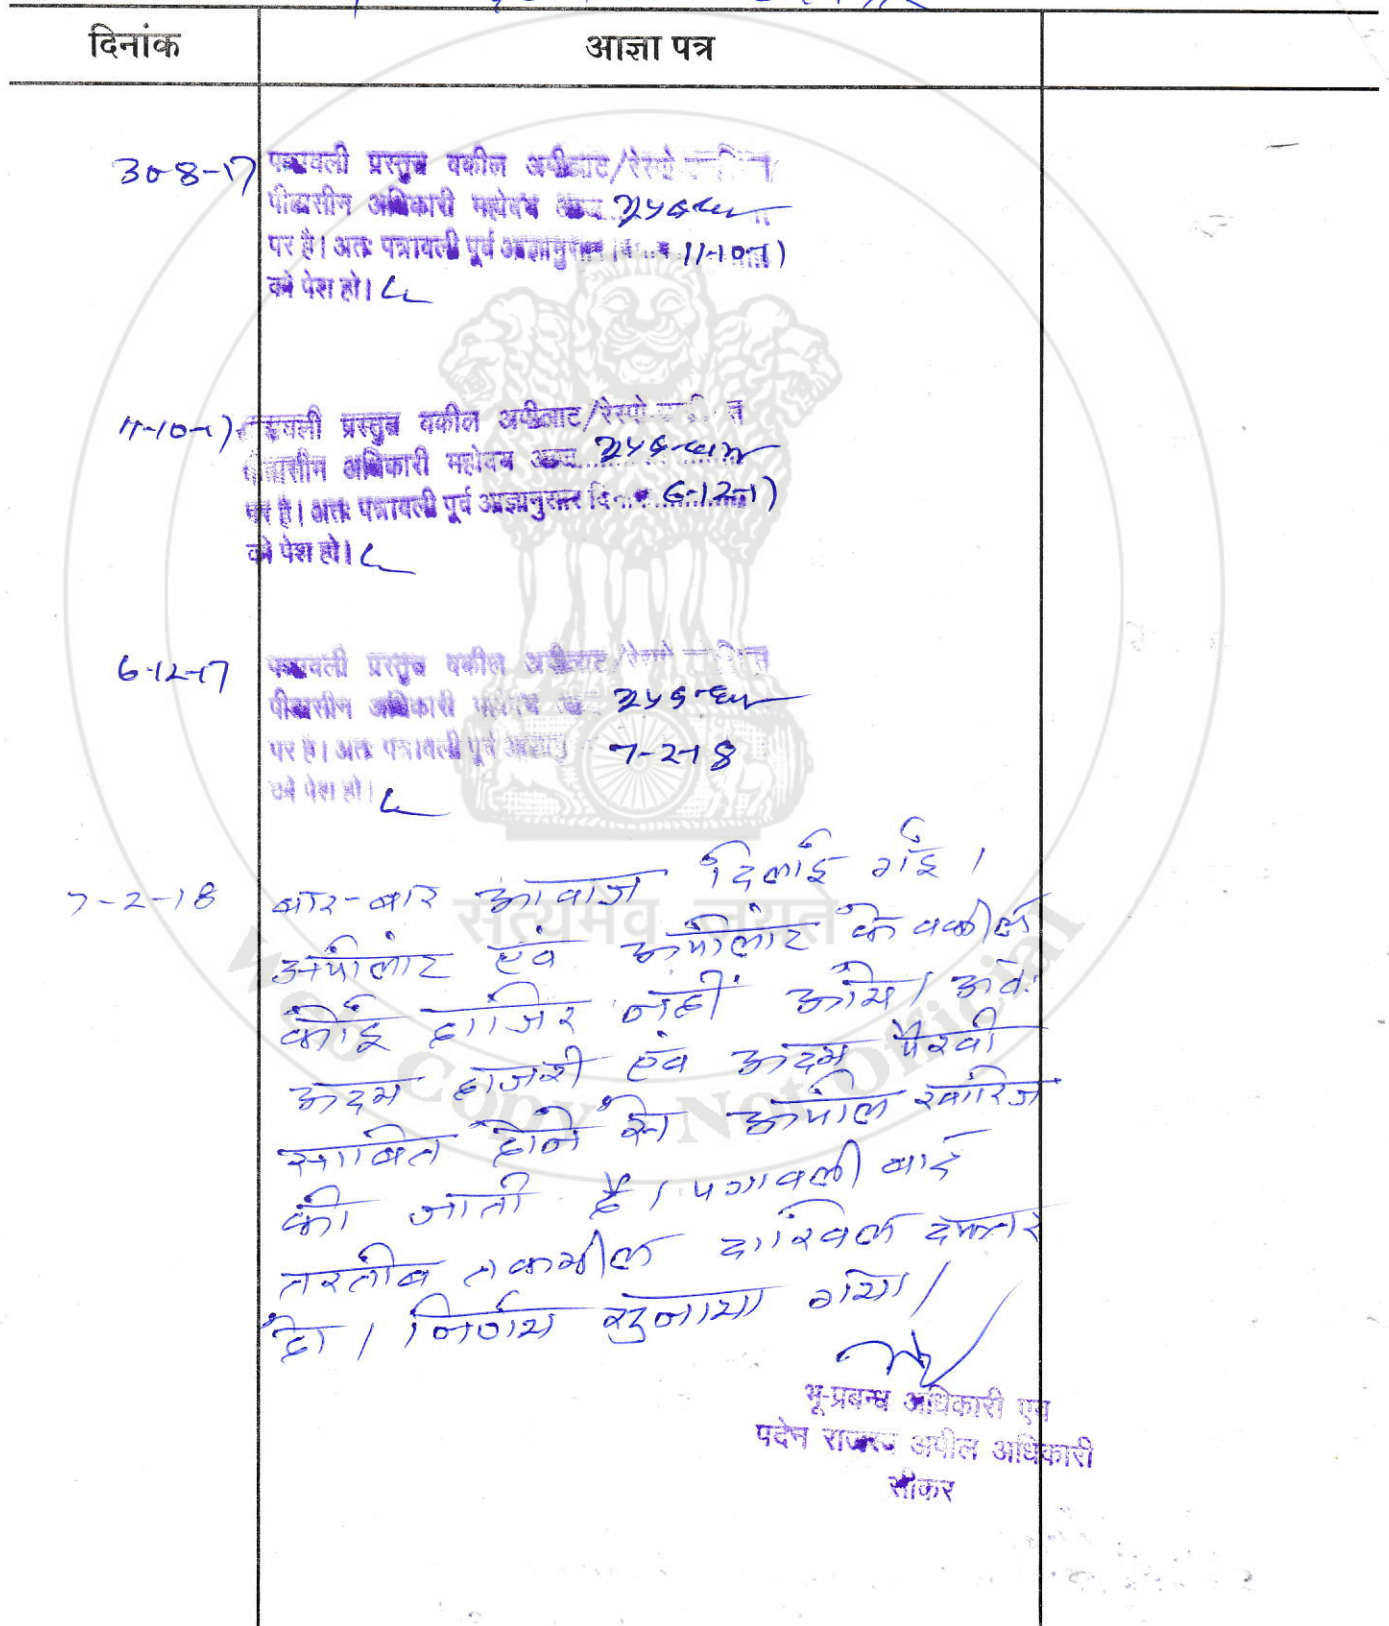 दिनांक
आज्ञा पत्र
30-8-17
पत्रावली प्रस्तुत वकील अपीलांट/रेस्पो
पीठासीन अधिकारी महोदय आज
पर है। अतः पत्रावली पूर्व आज्ञानुसार 11-10-17
को पेश हो।
11-10-17
पत्रावली प्रस्तुत वकील अपीलांट/रेस्पो
पीठासीन अधिकारी महोदय आज
पर है। अतः पत्रावली पूर्व आज्ञानुसार दिनांक 6-12-17
को पेश हो।
6-12-17
पत्रावली प्रस्तुत वकील अपीलांट/रेस्पो
पीठासीन अधिकारी महोदय आज
पर है। अतः पत्रावली पूर्व 7-2-18
को पेश हो।
7-2-18
बार-बार आवाज दिलाई गई।
अपीलांट एवं अपीलांट के वकील
कोई हाजिर नहीं आये। अतः
अदम हाजरी एवं अदम पैरवी
साबित होने से अपील खारिज
की जाती है। पत्रावली बाद
तरतीब तकमील दाखिल दफ्तर
हो। निर्णय सुनाया गया।
भू-प्रबन्ध अधिकारी एवं
पदेन राजस्व अपील अधिकारी
सीकर
सत्यमेव जयते
Web Copy Not Official